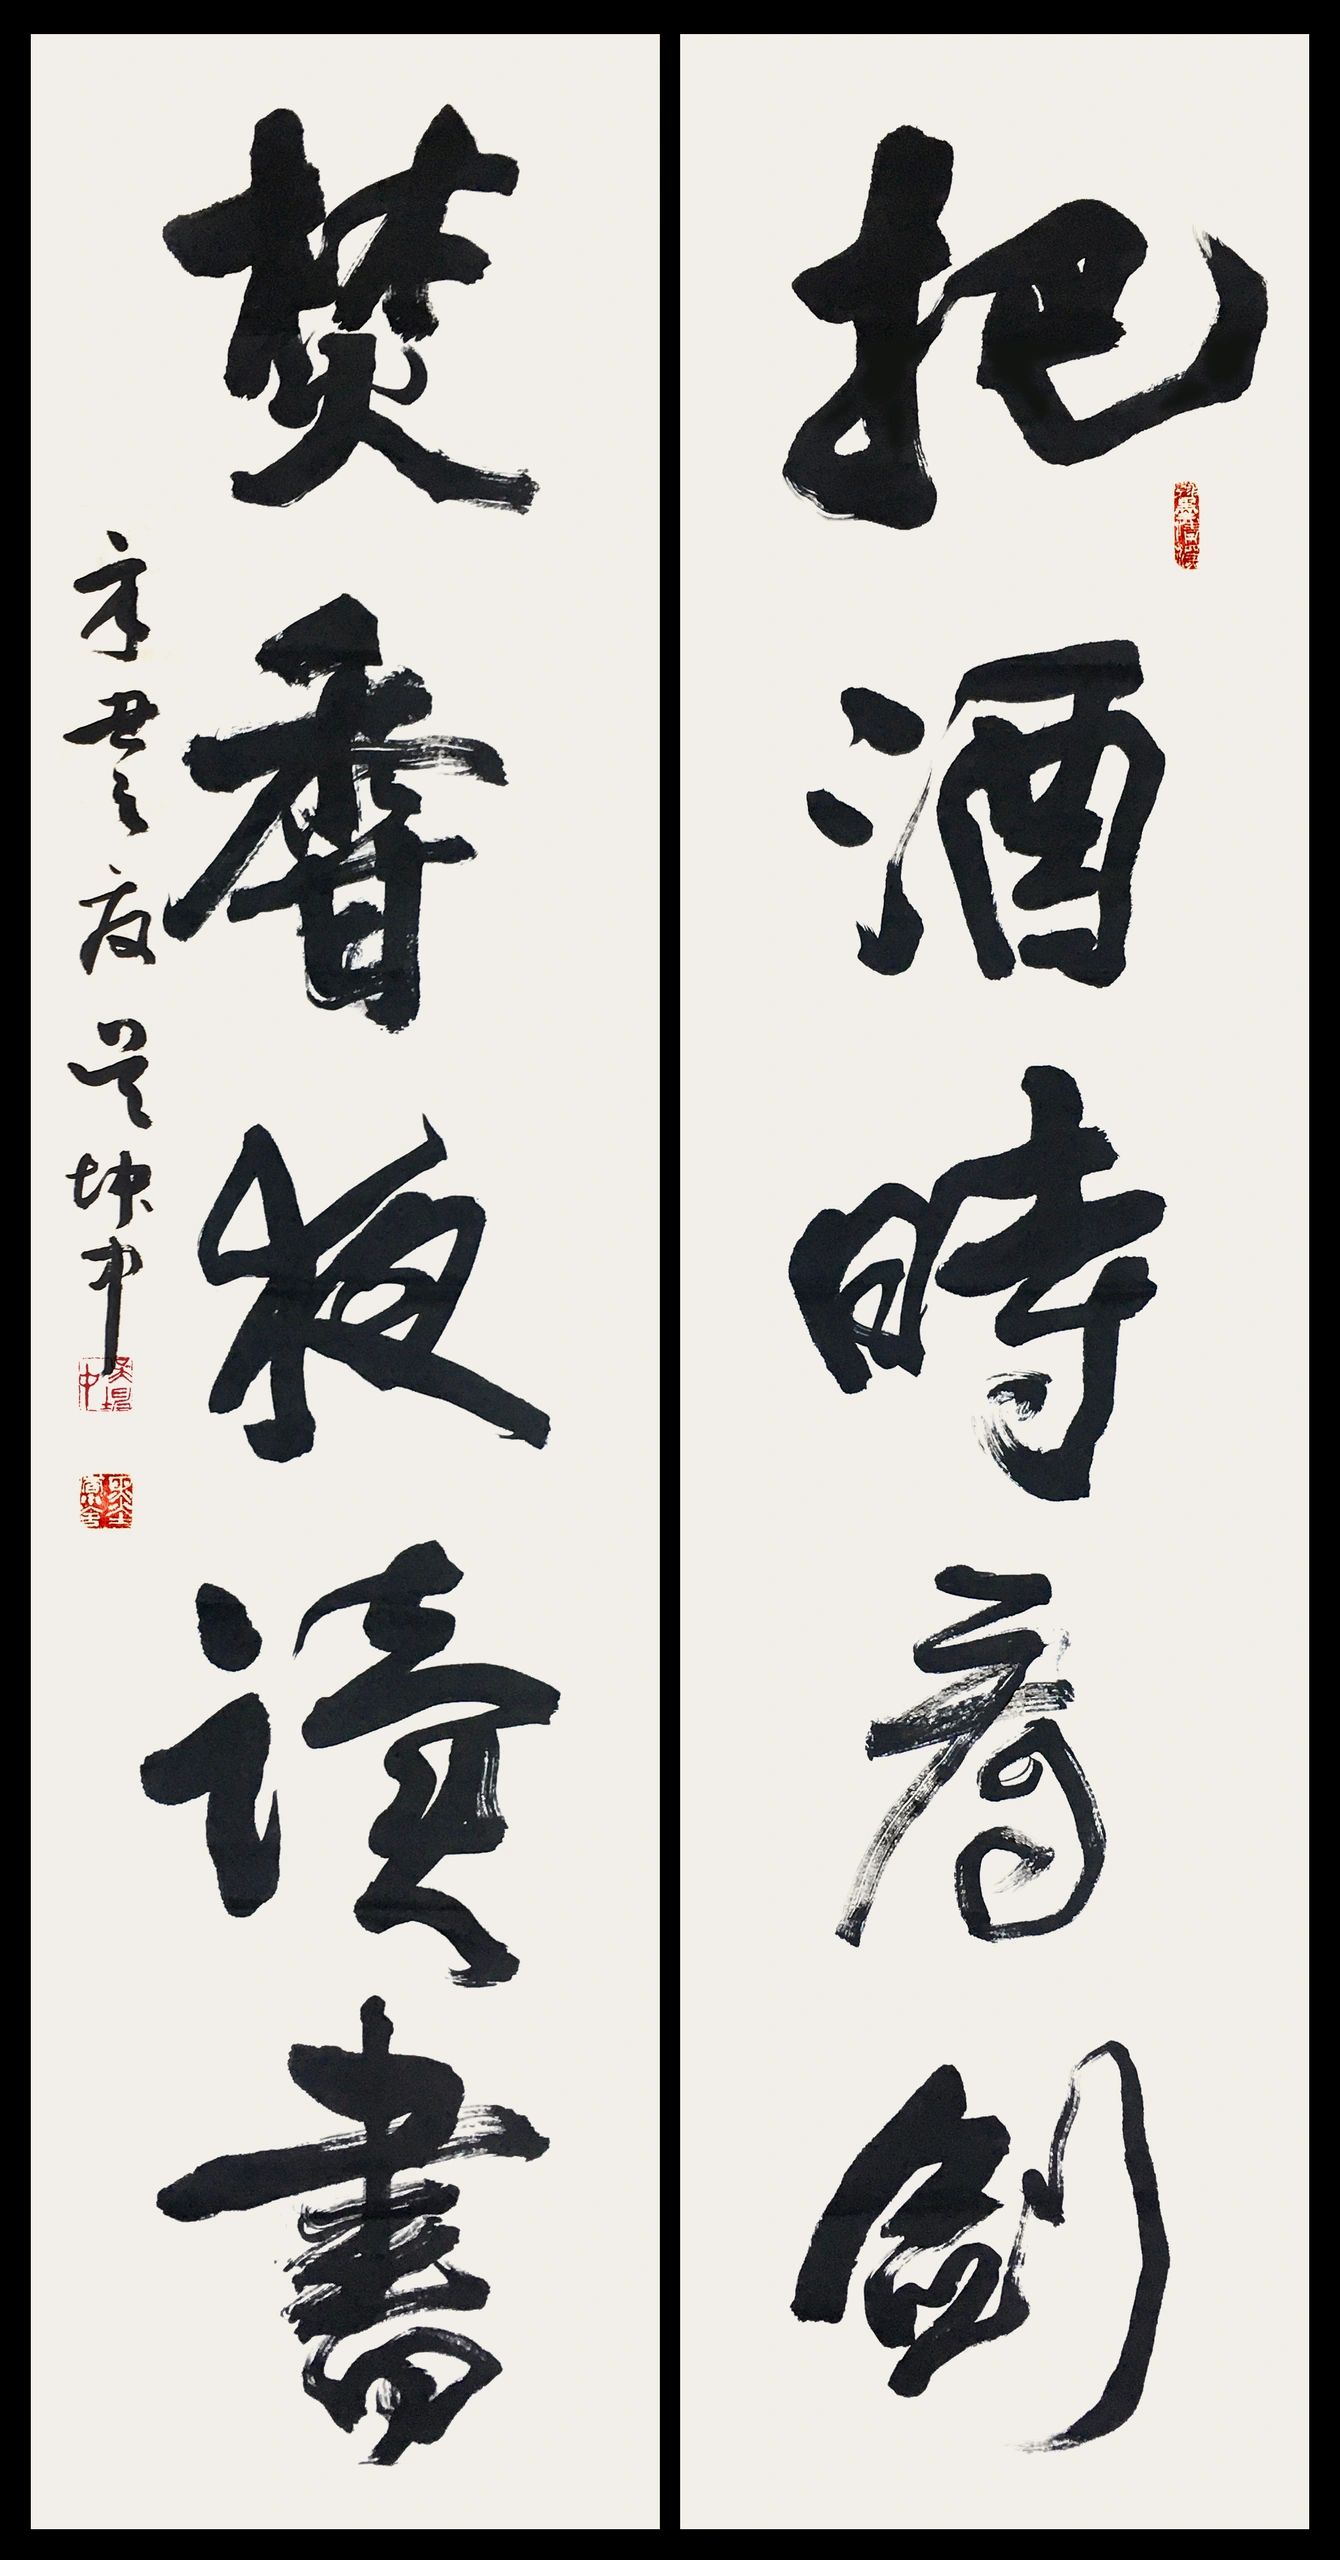 把酒時看劍
焚香夜讀書
辛丑之夜吴坤中